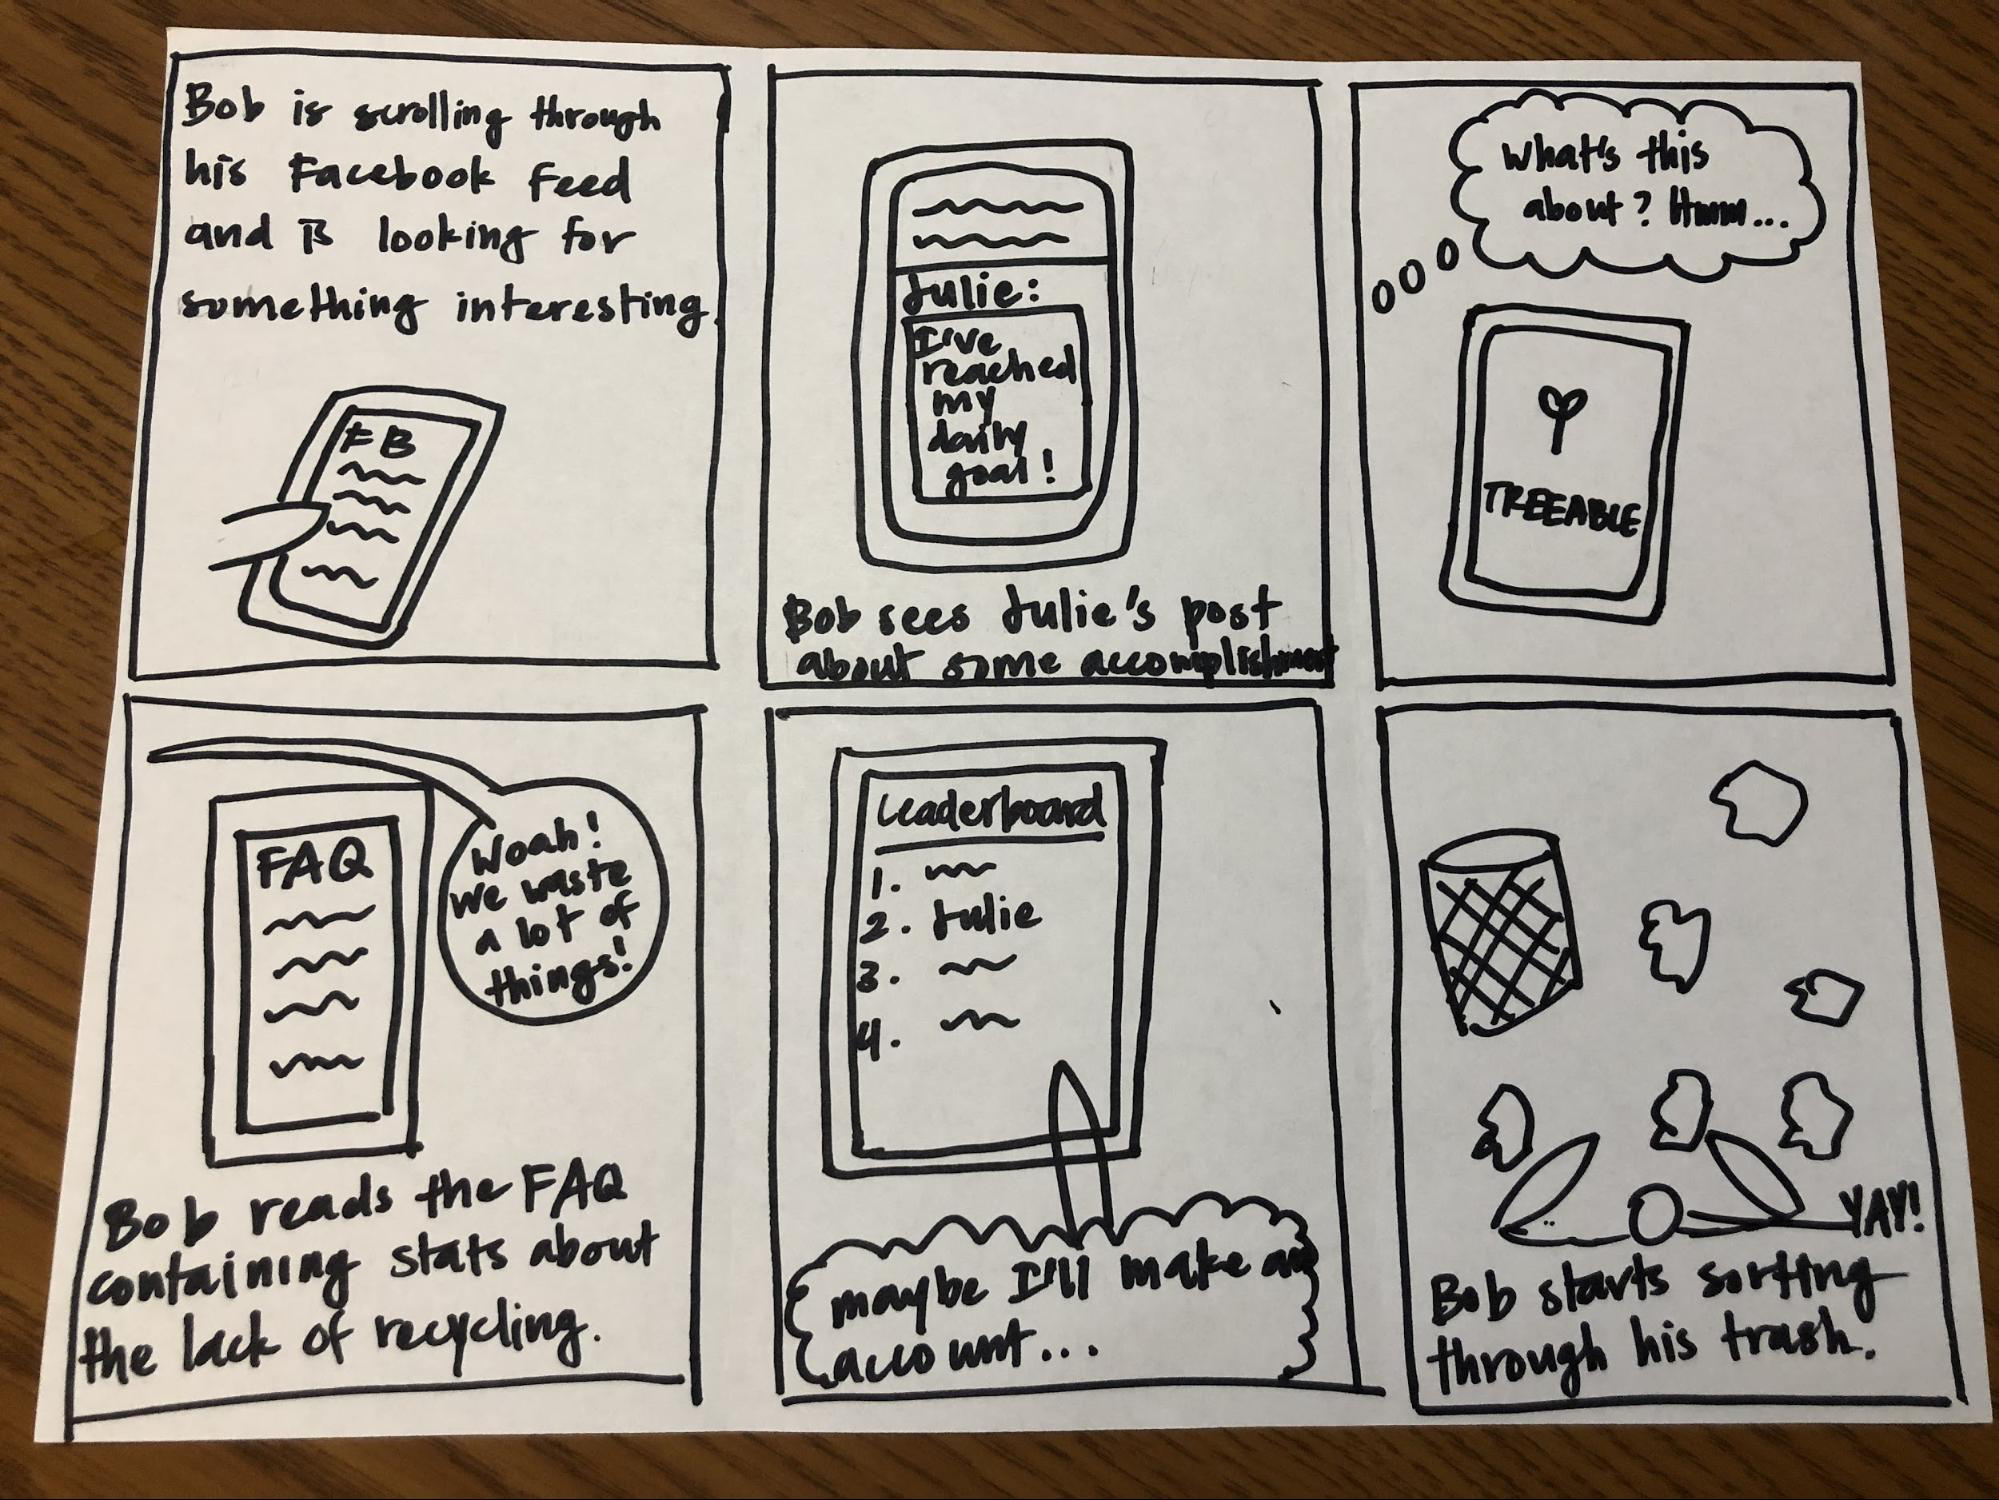 Bob is scrolling through
his Facebook Feed
and is looking for
something interesting.
FB
Julie:
I've
reached
my
daily
goal!
Bob sees Julie's post
about some accomplishment
What's this
about? Hmm...
TREEABLE
FAQ
Woah!
We waste
a lot of
things!
Bob reads the FAQ
containing stats about
the lack of recycling.
Leaderboard
1.
2. Julie
3.
4.
maybe I'll make an
account...
YAY!
Bob starts sorting
through his trash.